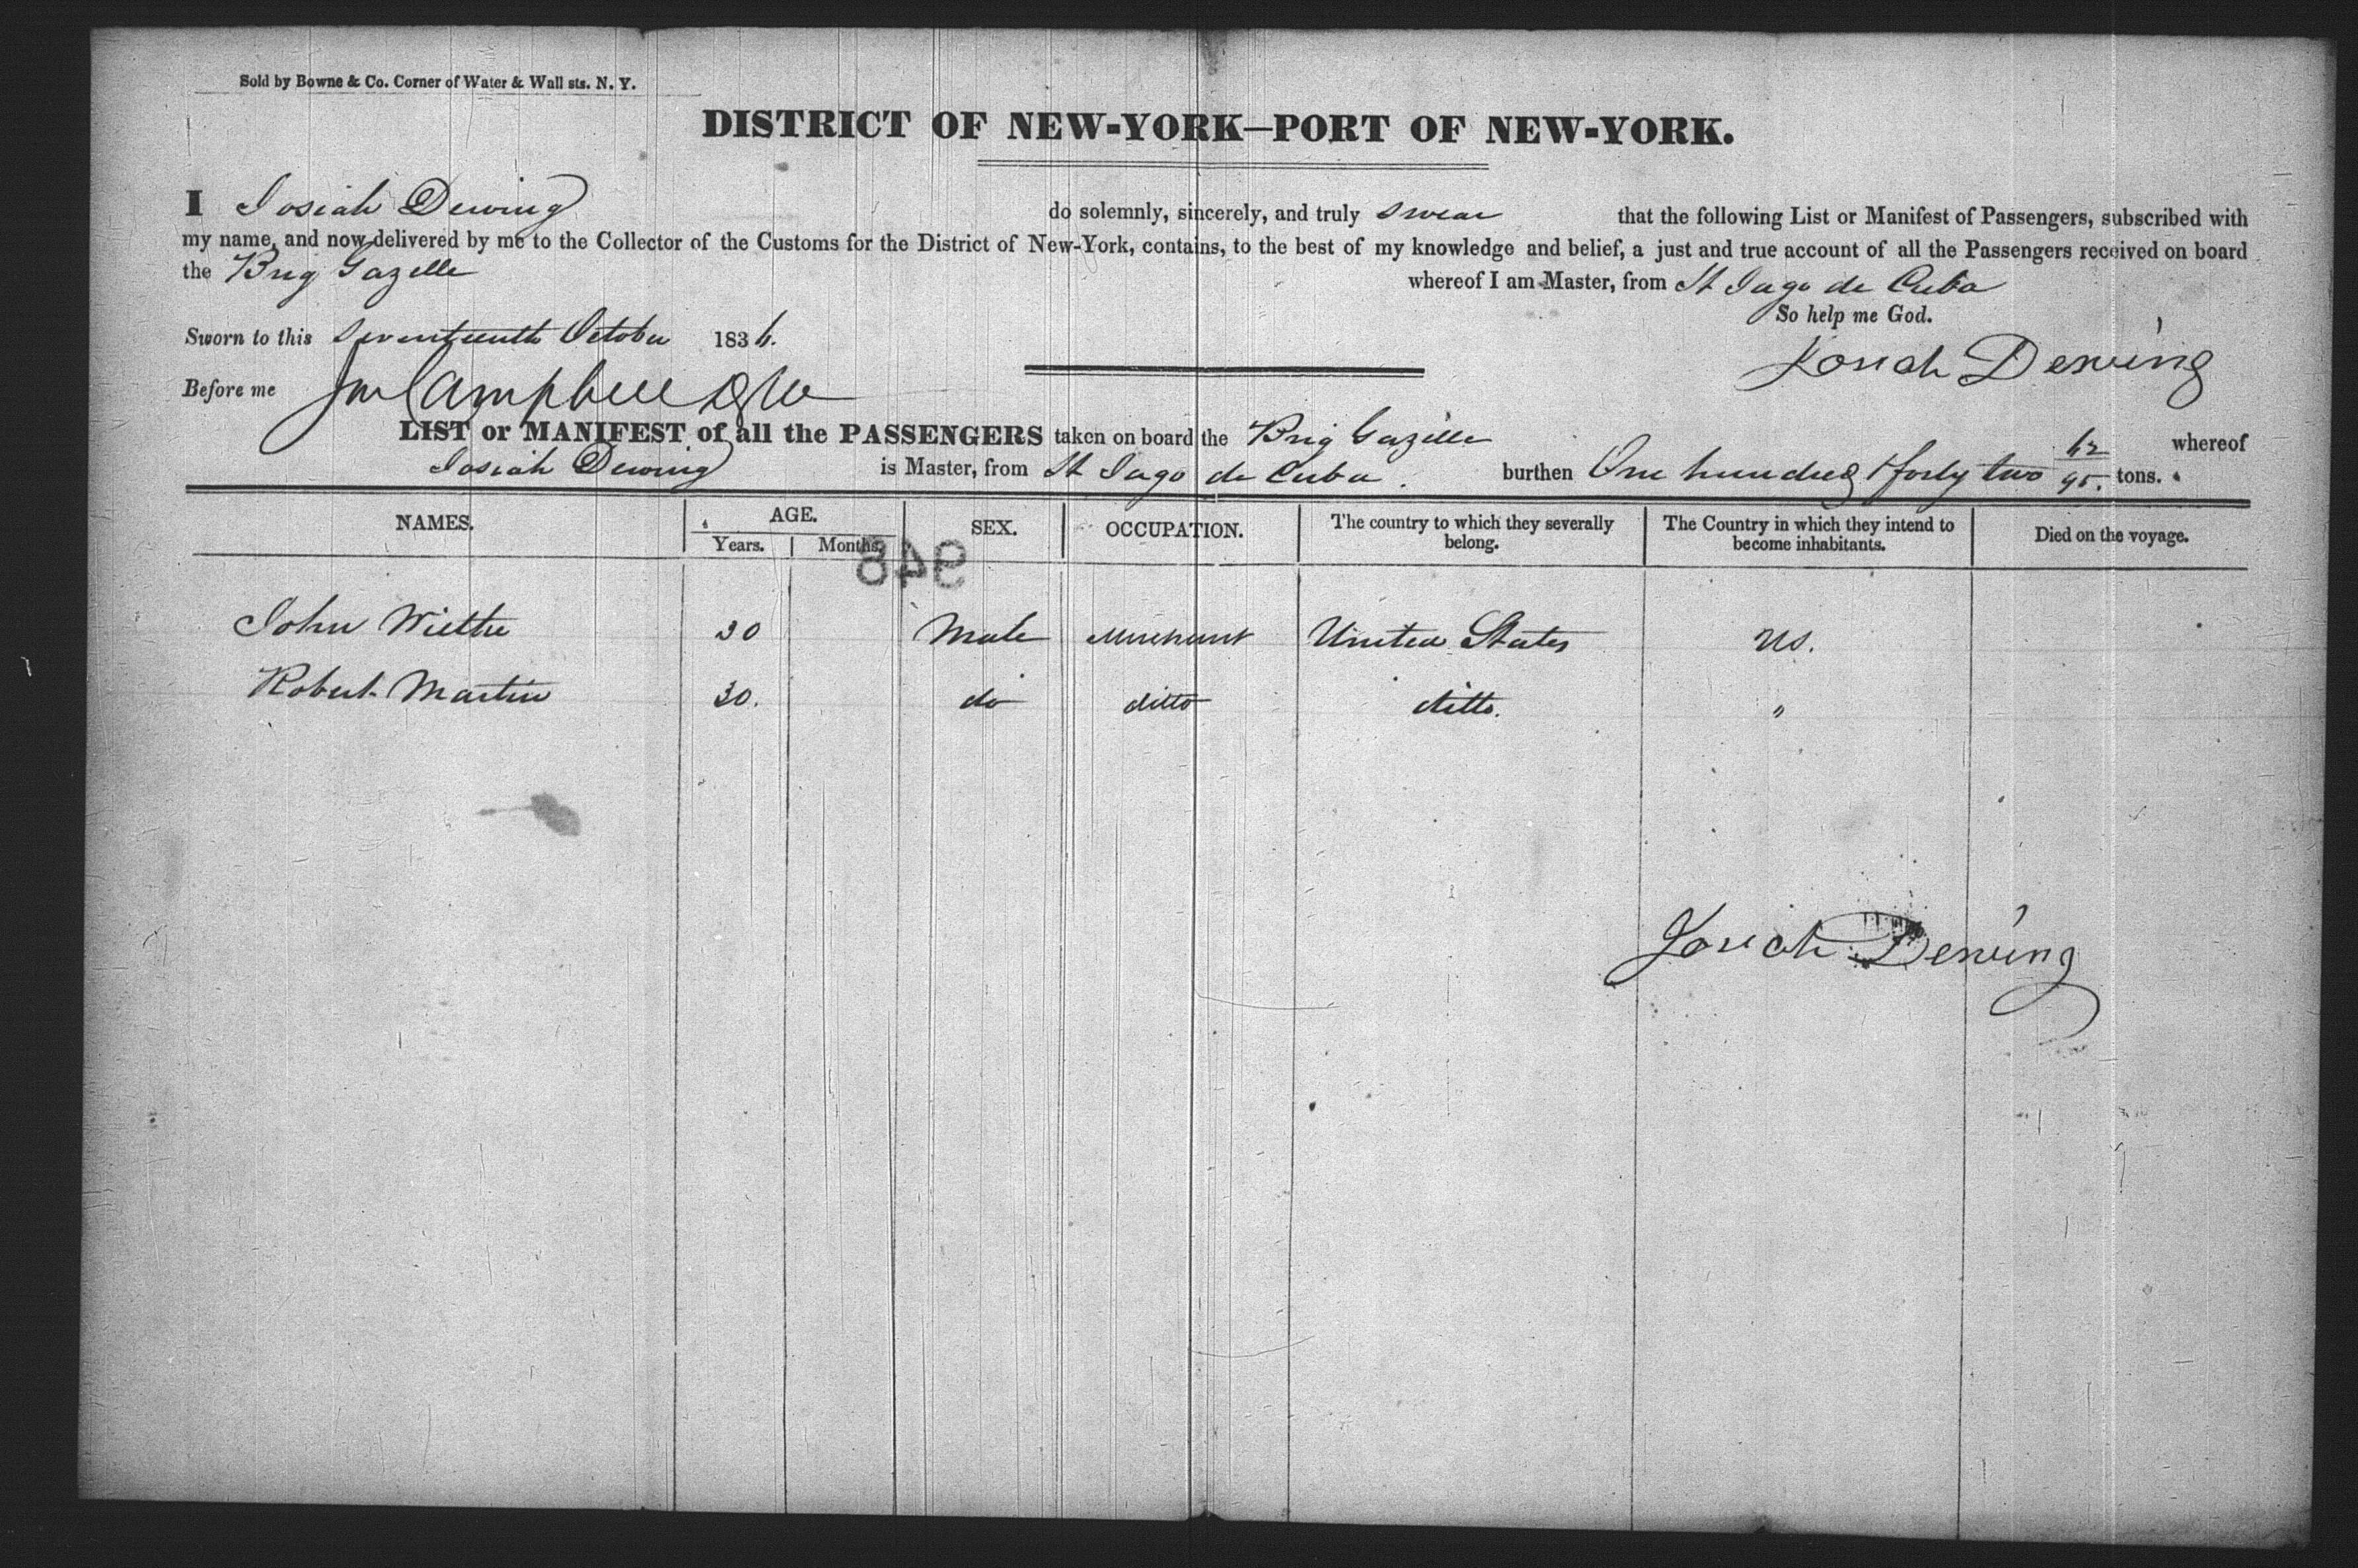 Sold by Bowne & Co. Corner of Water & Wall sts. N. Y.
DISTRICT OF NEW-YORK—PORT OF NEW-YORK.
I Josiah Dewing do solemnly, sincerely, and truly swear that the following List or Manifest of Passengers, subscribed with
my name, and now delivered by me to the Collector of the Customs for the District of New-York, contains, to the best of my knowledge and belief, a just and true account of all the Passengers received on board
the Brig Gazelle whereof I am Master, from St Jago de Cuba
So help me God.
Sworn to this Seventeenth October 1836.
Josiah Dewing
Before me Campbell
LIST or MANIFEST of all the PASSENGERS taken on board the Brig Gazelle whereof
Josiah Dewing is Master, from St Jago de Cuba. burthen One hundred & forty two 62/95. tons.
NAMES. AGE. SEX. OCCUPATION. The country to which they severally belong. The Country in which they intend to become inhabitants. Died on the voyage.
Years. Months.
948
John 30 Male Merchant United States US.
Robert Martin 30. do ditto ditto. "
Josiah Dewing